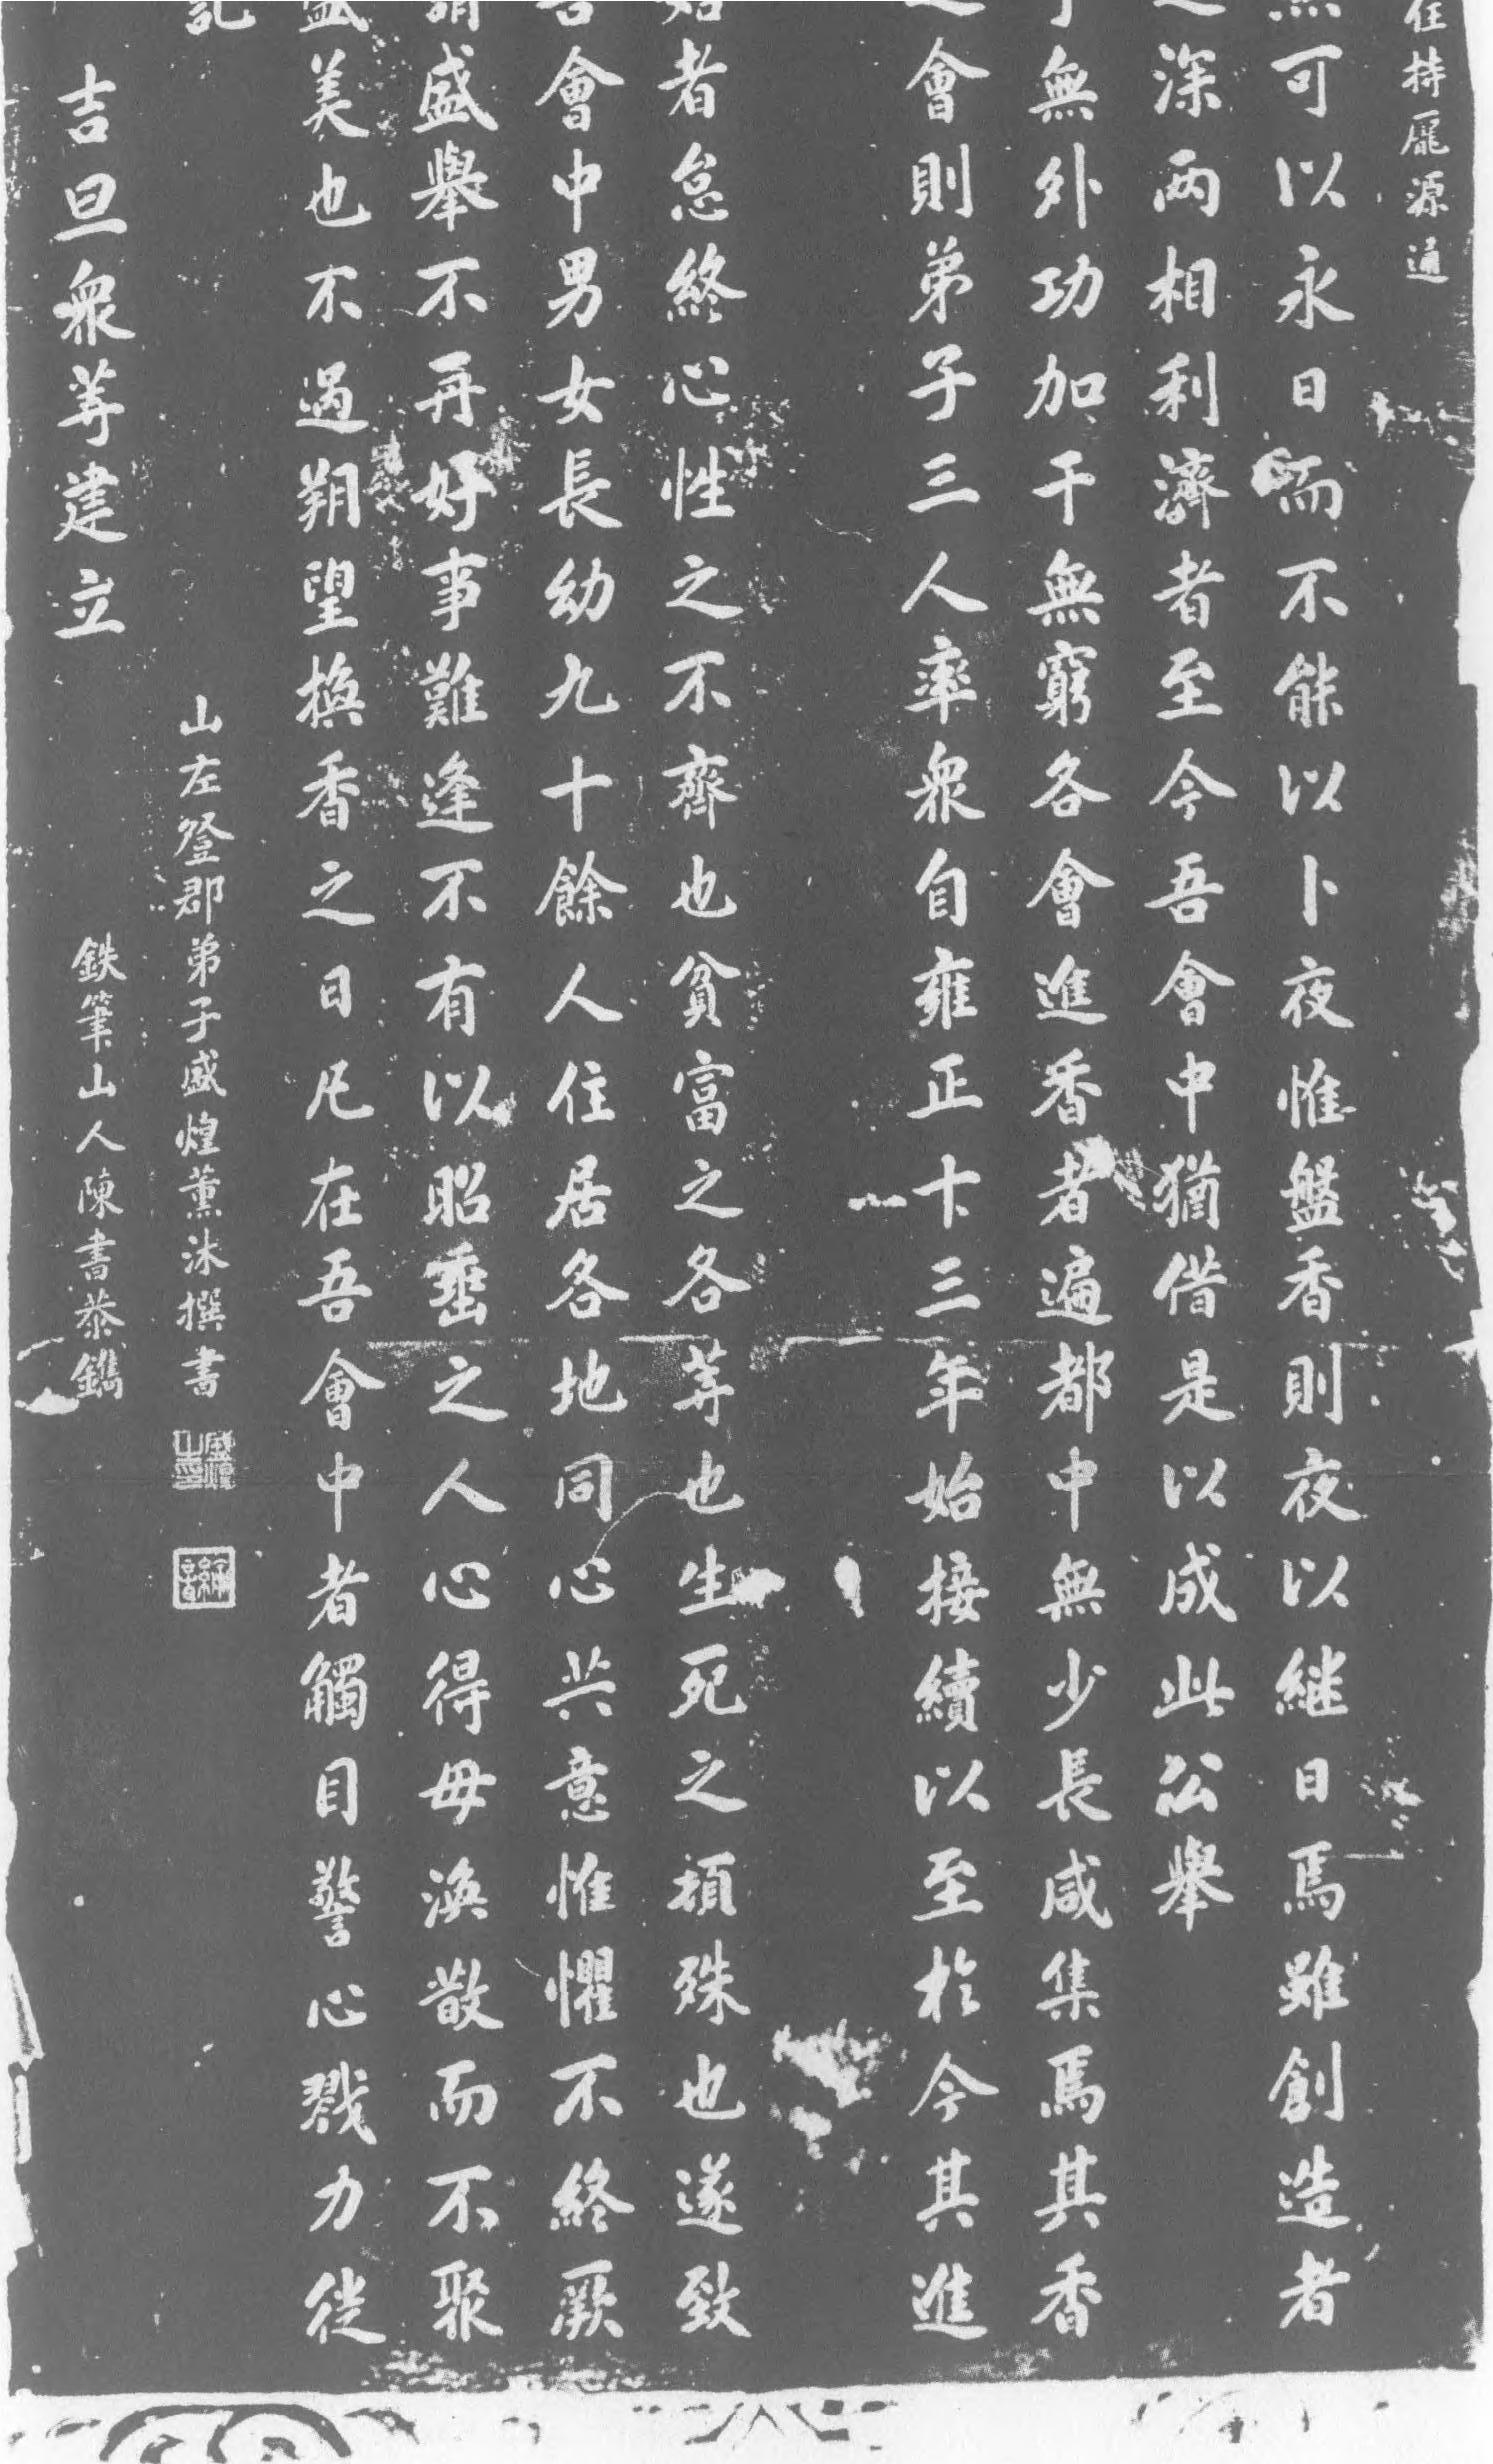 住持龎源通
無可以永日而不能以卜夜惟盤香則夜以継日焉雖創造者
之深两相利濟者至今吾會中猶借是以成此公舉
于無外功加于無窮各會進香者遍都中無少長咸集焉其香
之會則弟子三人率衆自雍正十三年始接續以至於今其進
始者怠終心性之不齊也貧富之各等也生死之頓殊也遂致
吾會中男女長幼九十餘人住居各地同心共意惟懼不終厥
謂盛舉不再好事難逢不有以昭垂之人心得毋渙散而不聚
盛美也不過朔望換香之日凡在吾會中者觸目警心戮力從
記
山左登郡弟子盛煌薰沐撰書
吉旦衆等建立
鉄筆山人陳書恭鐫